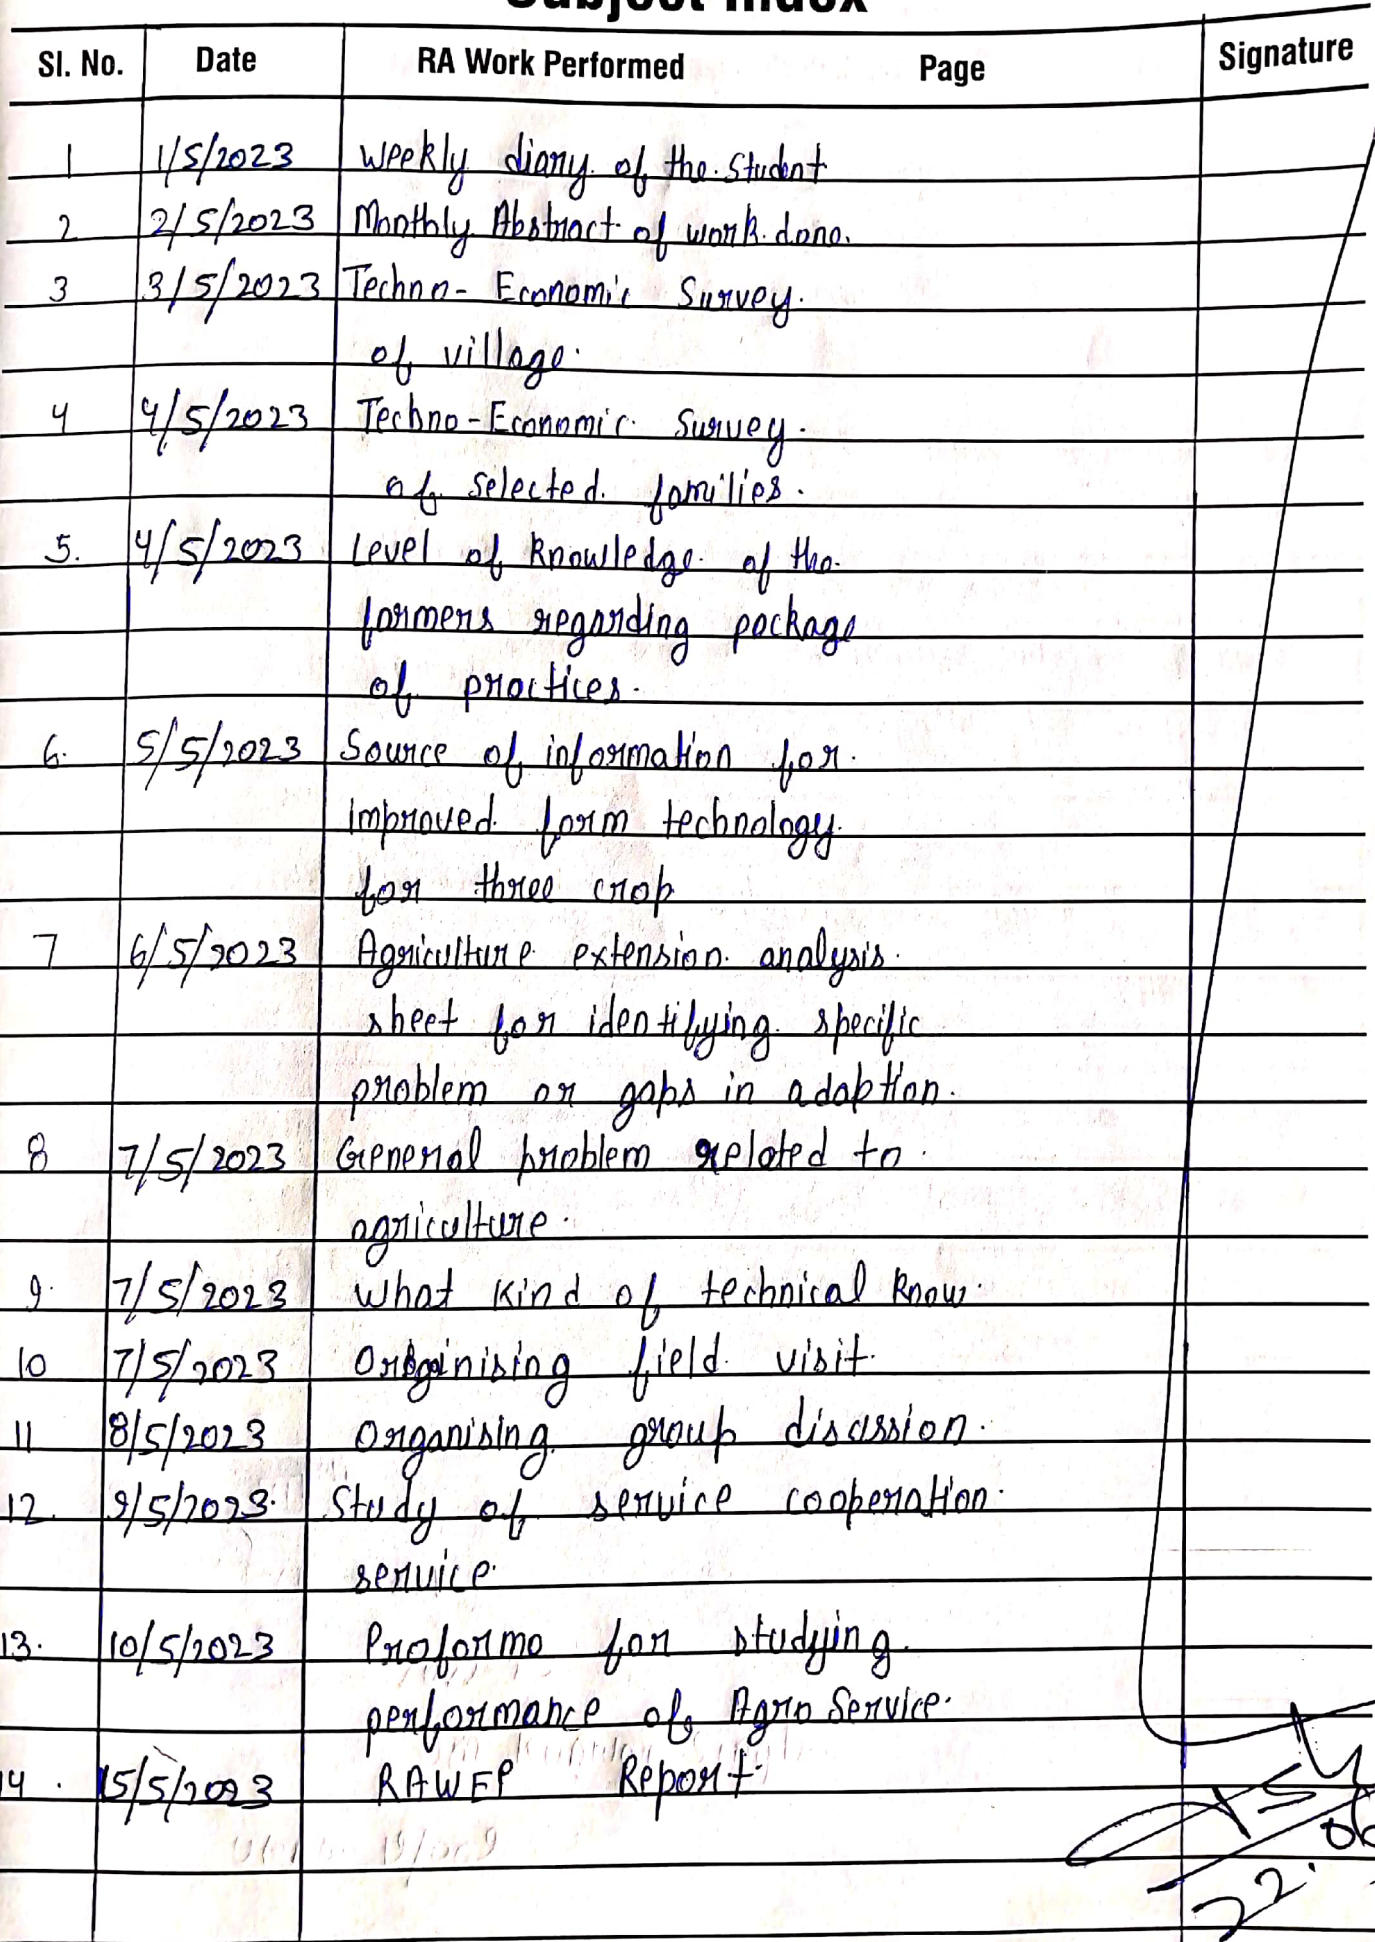 Subject Index
Sl. No. Date RA Work Performed Page Signature
1 1/5/2023 Weekly diary of the Student
2 2/5/2023 Monthly Abstract of work done.
3 3/5/2023 Techno-Economic Survey.
of village.
4 4/5/2023 Techno-Economic Survey.
of selected families.
5. 4/5/2023 Level of knowledge of the
farmers regarding package
of practices.
6. 5/5/2023 Source of information for
improved farm technology
for three crop
7 6/5/2023 Agriculture extension analysis
sheet for identifying specific
problem or gaps in adaption.
8 7/5/2023 General problem related to
agriculture.
9. 7/5/2023 What kind of technical know.
10 7/5/2023 field visit.
11 8/5/2023 Organising group discussion.
12. 9/5/2023 Study of service cooperation
service.
13. 10/5/2023 Proforma for studying
performance of Agro Service.
14. 15/5/2023 RAWEP Report
22.06